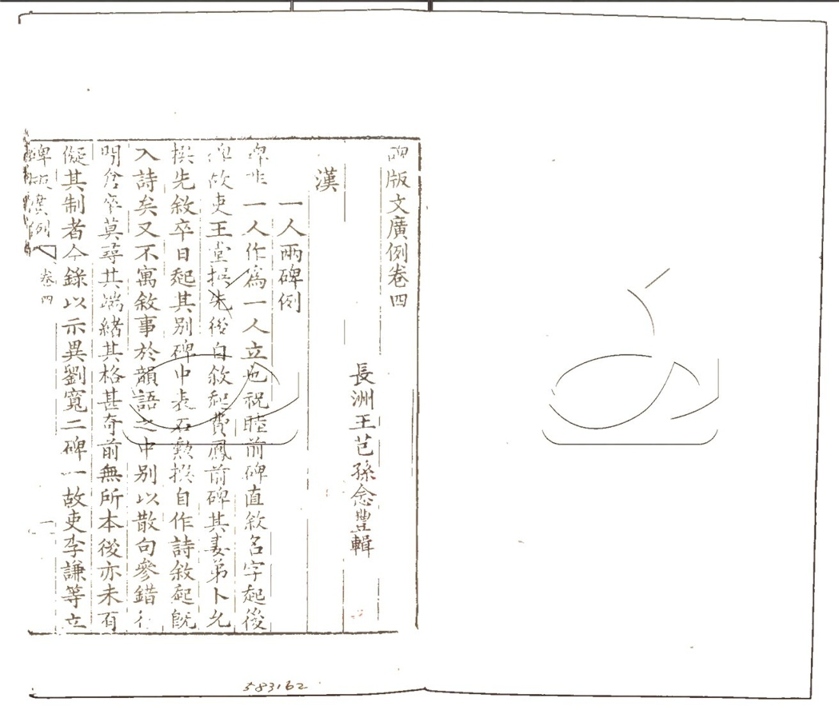 碑版文廣例卷四
長洲王芑孫念豐輯
漢
一人兩碑例
碑非一人作爲一人立也祝睦前碑直敘名字起後
碑故吏王堂等先後自敘起費鳳前碑其妻弟卜允
撰先敘卒日起其别碑中表石勲撰自作詩敘起旣
入詩矣又不寓敘事於韻語之中别以散句參錯行
明詹卒莫尋其端緒其格甚奇前無所本後亦未有
儗其制者今錄以示異劉寬二碑一故吏李謙等立
碑版廣例
卷四
一
583162